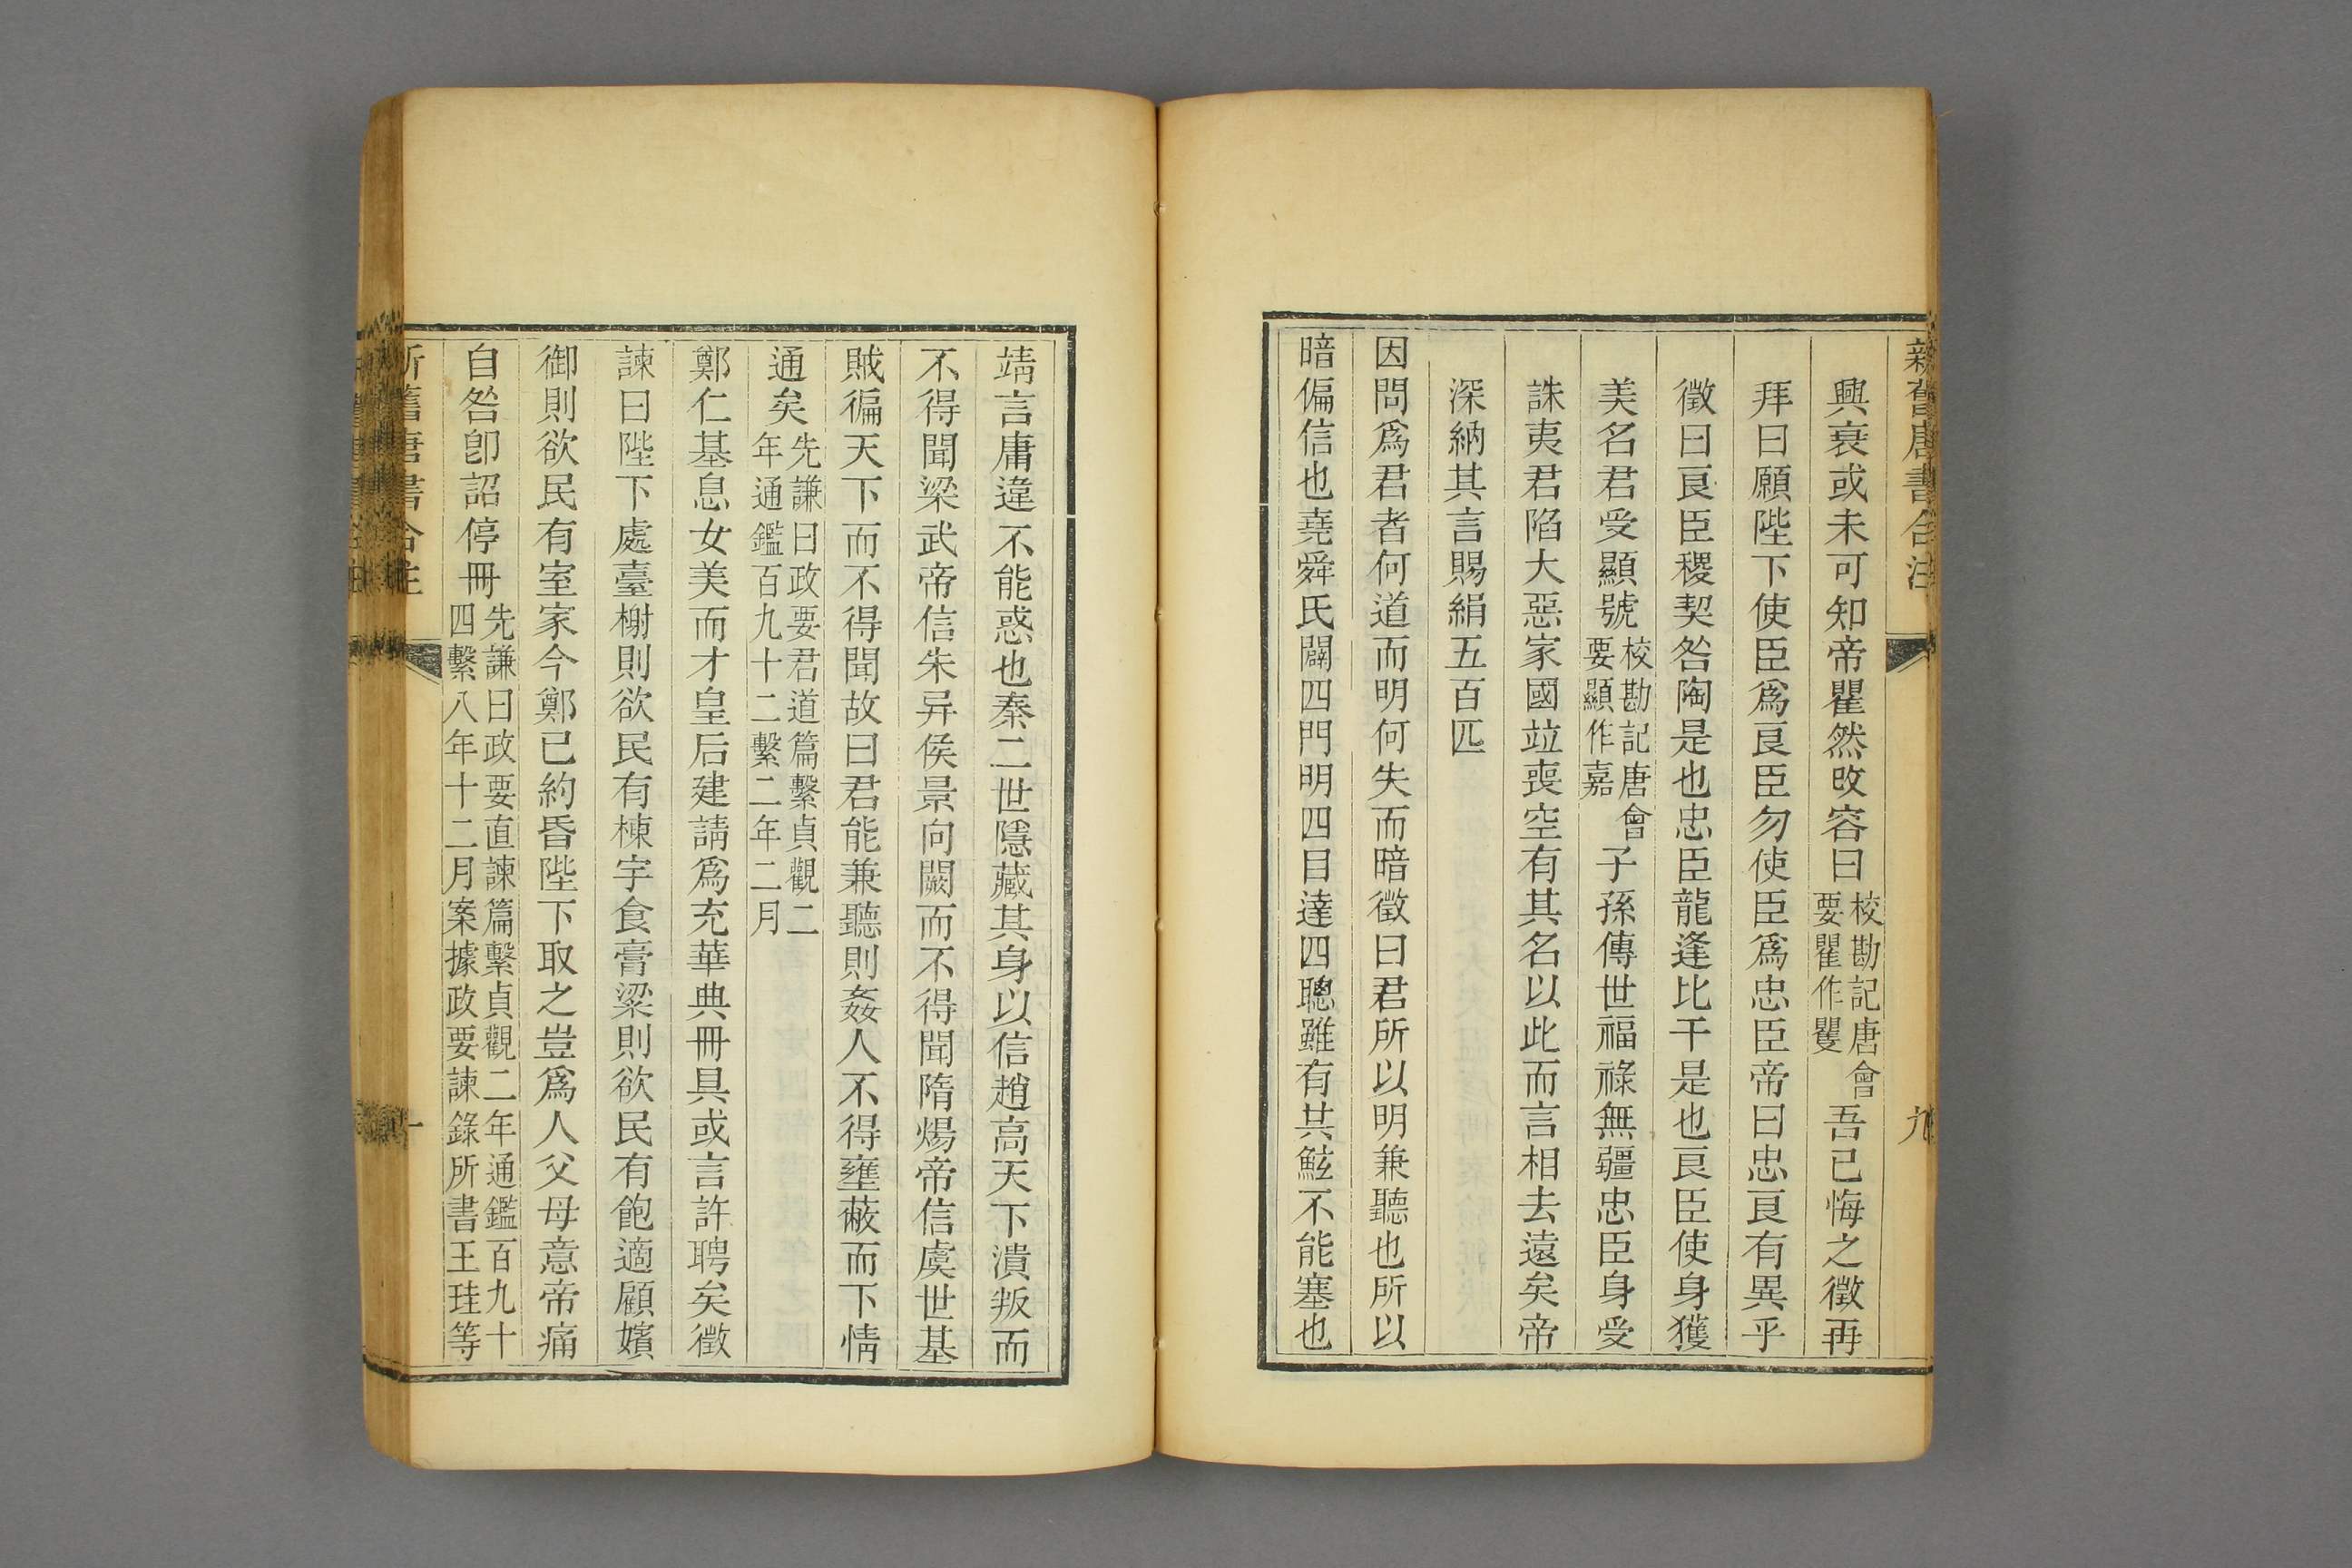 新舊唐書合注
九
興衰或未可知帝瞿然改容曰校勘記唐會要瞿作矍吾已悔之徵再
拜曰願陛下使臣爲良臣勿使臣爲忠臣帝曰忠良有異乎
徵曰良臣稷契咎陶是也忠臣龍逢比干是也良臣使身獲
美名君受顯號校勘記唐會要顯作嘉子孫傳世福祿無疆忠臣身受
誅夷君陷大惡家國竝喪空有其名以此而言相去遠矣帝
深納其言賜絹五百匹
因問爲君者何道而明何失而暗徵曰君所以明兼聽也所以
暗偏信也堯舜氏闢四門明四目達四聰雖有共鮌不能塞也
靖言庸違不能惑也秦二世隱藏其身以信趙高天下潰叛而
不得聞梁武帝信朱异侯景向闕而不得聞隋煬帝信虞世基
賊徧天下而不得聞故曰君能兼聽則姦人不得壅蔽而下情
通矣先謙曰政要君道篇繫貞觀二年通鑑百九十二繫二年二月
鄭仁基息女美而才皇后建請爲充華典冊具或言許聘矣徵
諫曰陛下處臺榭則欲民有棟宇食膏粱則欲民有飽適顧嬪
御則欲民有室家今鄭已約昏陛下取之豈爲人父母意帝痛
自咎卽詔停冊先謙曰政要直諫篇繫貞觀二年通鑑百九十四繫八年十二月案據政要諫錄所書王珪等